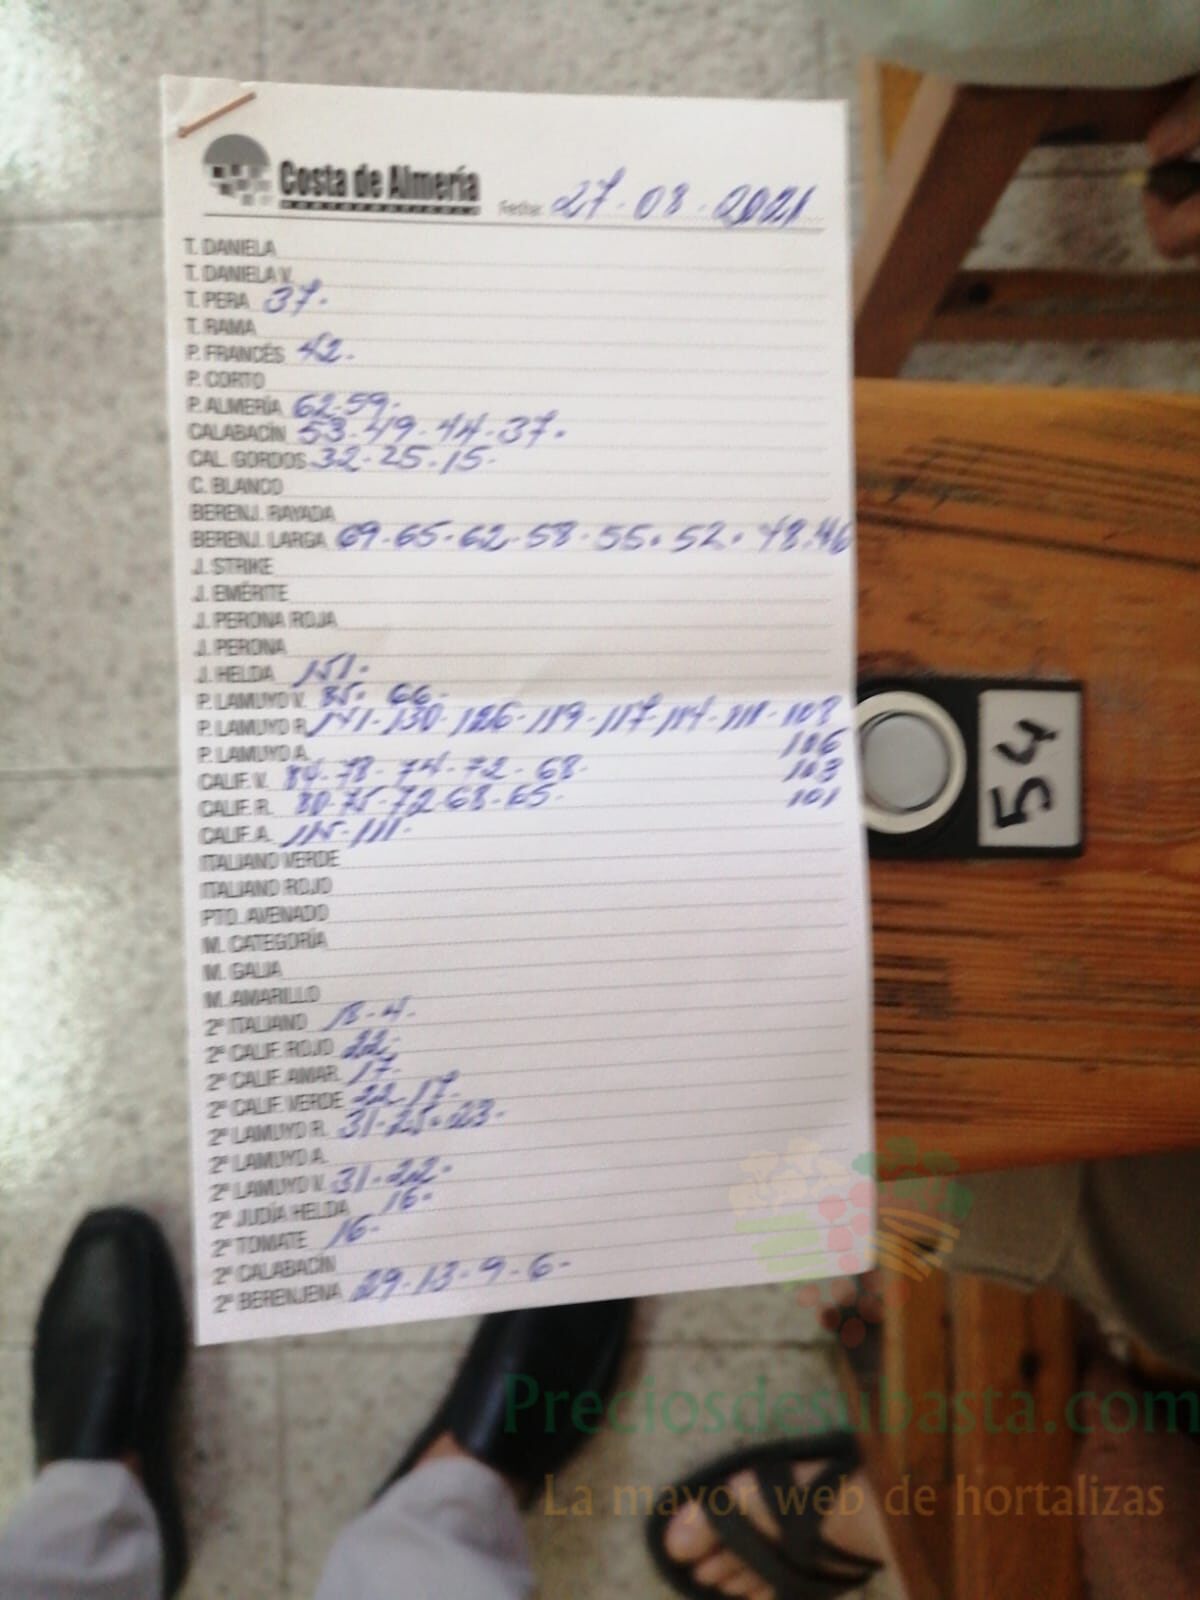 Costa de Almería
Fecha: 27-08-2021
T. DANIELA
T. DANIELA V.
T. PERA 37.
T. RAMA
P. FRANCÉS 42.
P. CORTO
P. ALMERÍA 62-59.
CALABACÍN 53-49-44-37.
CAL. GORDOS 32-25-15.
C. BLANCO
BERENJ. RAYADA
BERENJ. LARGA 69-65-62-58-55.52.48.46
J. STRIKE
J. EMÉRITE
J. PERONA ROJA
J. PERONA
J. HELDA 151.
P. LAMUYO V. 85. 66.
P. LAMUYO R. 141-130-126-119-117-114-111-108
P. LAMUYO A. 106
CALIF. V. 84-78-74-72-68. 103
CALIF. R. 80-75-72-68-65. 101
CALIF. A. 115-111.
ITALIANO VERDE
ITALIANO ROJO
PTO. AVENADO
M. CATEGORÍA
M. GALIA
M. AMARILLO
2ª ITALIANO 18-4.
2ª CALIF. ROJO 22.
2ª CALIF. AMAR. 17.
2ª CALIF. VERDE 22-17.
2ª LAMUYO R. 31-25.23.
2ª LAMUYO A.
2ª LAMUYO V. 31-22.
2ª JUDÍA HELDA 16.
2ª TOMATE 16.
2ª CALABACÍN
2ª BERENJENA 29-13-9-6.
54
Preciosdesubasta.com
La mayor web de hortalizas